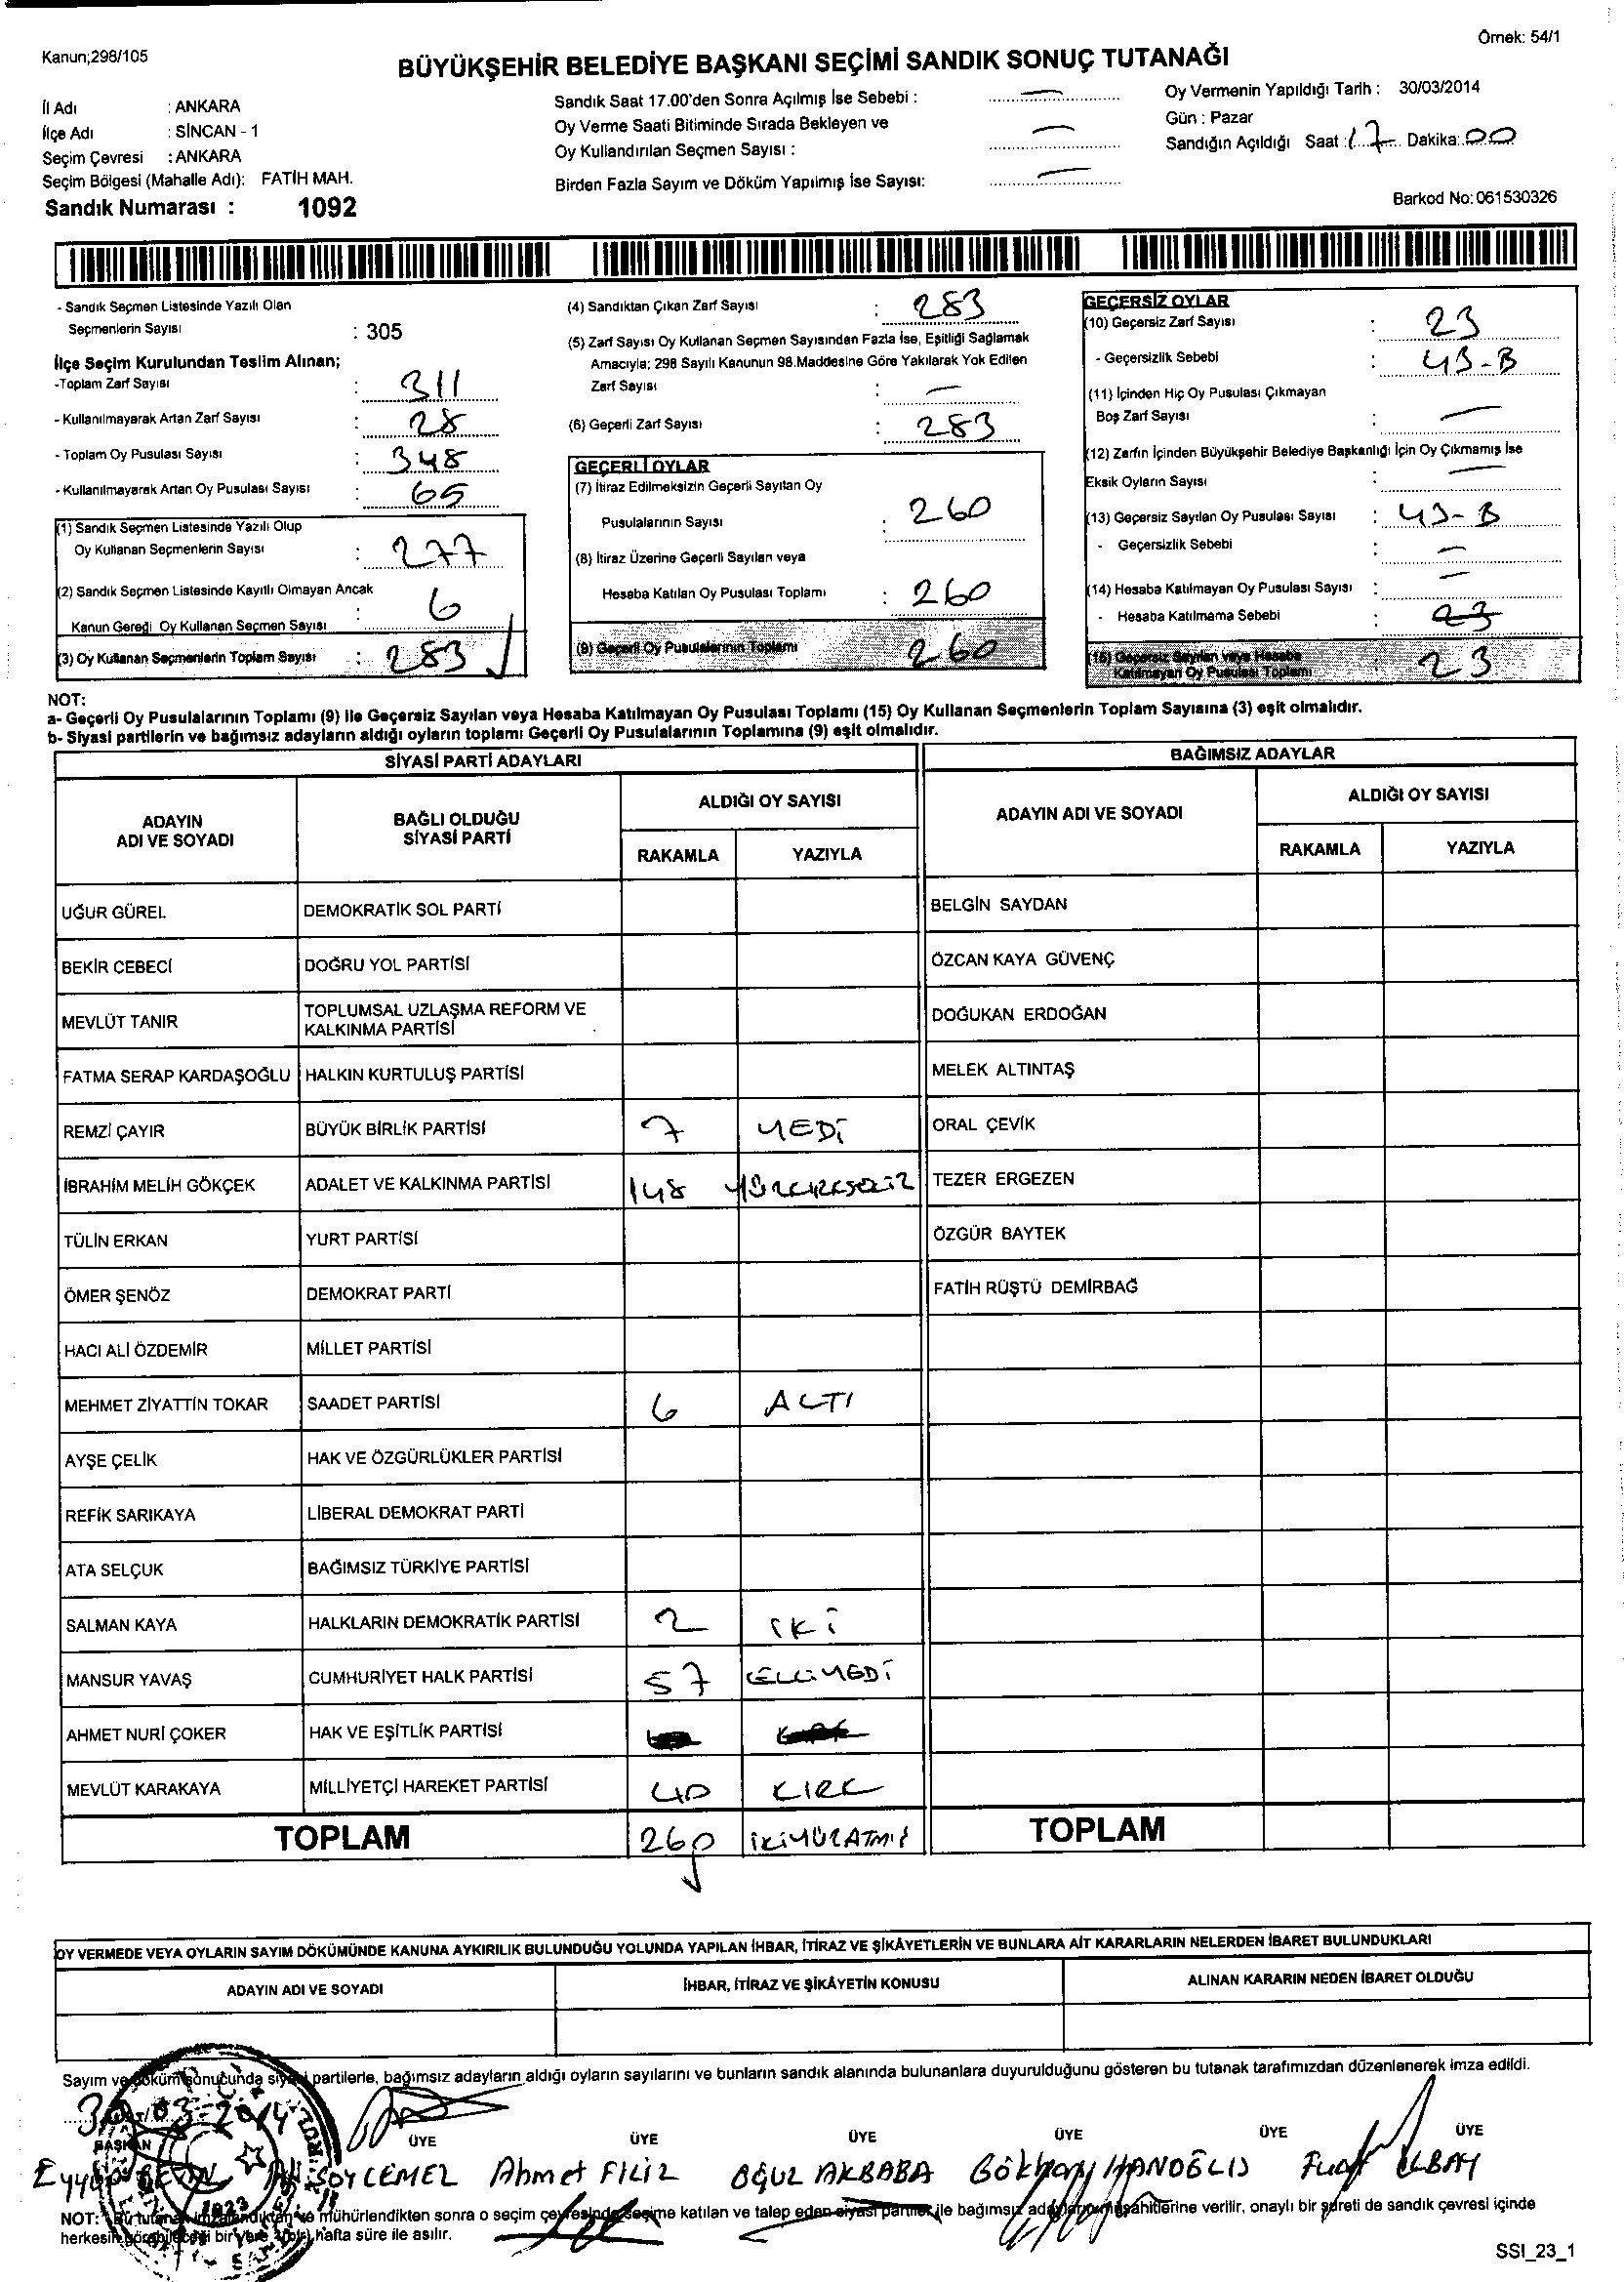 Kanun;298/105
Örnek: 54/1
BÜYÜKŞEHİR BELEDİYE BAŞKANI SEÇİMİ SANDIK SONUÇ TUTANAĞI
İl Adı : ANKARA
İlçe Adı : SİNCAN - 1
Seçim Çevresi : ANKARA
Seçim Bölgesi (Mahalle Adı): FATİH MAH.
Sandık Numarası : 1092
Sandık Saat 17.00'den Sonra Açılmış İse Sebebi : —
Oy Verme Saati Bitiminde Sırada Bekleyen ve
Oy Kullandırılan Seçmen Sayısı : —
Birden Fazla Sayım ve Döküm Yapılmış İse Sayısı: —
Oy Vermenin Yapıldığı Tarih : 30/03/2014
Gün : Pazar
Sandığın Açıldığı Saat : 17 Dakika: 00
Barkod No: 061530326
- Sandık Seçmen Listesinde Yazılı Olan
Seçmenlerin Sayısı : 305
İlçe Seçim Kurulundan Teslim Alınan;
-Toplam Zarf Sayısı : 311
- Kullanılmayarak Artan Zarf Sayısı : 28
- Toplam Oy Pusulası Sayısı : 348
- Kullanılmayarak Artan Oy Pusulası Sayısı : 65
(1) Sandık Seçmen Listesinde Yazılı Olup
Oy Kullanan Seçmenlerin Sayısı : 277
(2) Sandık Seçmen Listesinde Kayıtlı Olmayan Ancak
Kanun Gereği Oy Kullanan Seçmen Sayısı : 6
(3) Oy Kullanan Seçmenlerin Toplam Sayısı : 283
(4) Sandıktan Çıkan Zarf Sayısı : 283
(5) Zarf Sayısı Oy Kullanan Seçmen Sayısından Fazla İse, Eşitliği Sağlamak
Amacıyla; 298 Sayılı Kanunun 98.Maddesine Göre Yakılarak Yok Edilen
Zarf Sayısı : —
(6) Geçerli Zarf Sayısı : 283
GEÇERLİ OYLAR
(7) İtiraz Edilmeksizin Geçerli Sayılan Oy
Pusulalarının Sayısı : 260
(8) İtiraz Üzerine Geçerli Sayılan veya
Hesaba Katılan Oy Pusulası Toplamı : 260
(9) Geçerli Oy Pusulalarının Toplamı 260
GEÇERSİZ OYLAR
(10) Geçersiz Zarf Sayısı : 23
- Geçersizlik Sebebi : 43-B
(11) İçinden Hiç Oy Pusulası Çıkmayan
Boş Zarf Sayısı : —
(12) Zarfın İçinden Büyükşehir Belediye Başkanlığı İçin Oy Çıkmamış İse
Eksik Oyların Sayısı : —
(13) Geçersiz Sayılan Oy Pusulası Sayısı : 43-B
- Geçersizlik Sebebi : —
(14) Hesaba Katılmayan Oy Pusulası Sayısı : —
- Hesaba Katılmama Sebebi : 23
(15) Geçersiz Sayılan veya Hesaba
Katılmayan Oy Pusulası Toplamı : 23
NOT:
a- Geçerli Oy Pusulalarının Toplamı (9) ile Geçersiz Sayılan veya Hesaba Katılmayan Oy Pusulası Toplamı (15) Oy Kullanan Seçmenlerin Toplam Sayısına (3) eşit olmalıdır.
b- Siyasi partilerin ve bağımsız adayların aldığı oyların toplamı Geçerli Oy Pusulalarının Toplamına (9) eşit olmalıdır.
SİYASİ PARTİ ADAYLARI
ADAYIN
ADI VE SOYADI
BAĞLI OLDUĞU
SİYASİ PARTİ
ALDIĞI OY SAYISI
RAKAMLA YAZIYLA
UĞUR GÜREL DEMOKRATİK SOL PARTİ
BEKİR CEBECİ DOĞRU YOL PARTİSİ
MEVLÜT TANIR TOPLUMSAL UZLAŞMA REFORM VE
KALKINMA PARTİSİ
FATMA SERAP KARDAŞOĞLU HALKIN KURTULUŞ PARTİSİ
REMZİ ÇAYIR BÜYÜK BİRLİK PARTİSİ 7 YEDİ
İBRAHİM MELİH GÖKÇEK ADALET VE KALKINMA PARTİSİ 148
TÜLİN ERKAN YURT PARTİSİ
ÖMER ŞENÖZ DEMOKRAT PARTİ
HACI ALİ ÖZDEMİR MİLLET PARTİSİ
MEHMET ZİYATTİN TOKAR SAADET PARTİSİ 6 ALTI
AYŞE ÇELİK HAK VE ÖZGÜRLÜKLER PARTİSİ
REFİK SARIKAYA LİBERAL DEMOKRAT PARTİ
ATA SELÇUK BAĞIMSIZ TÜRKİYE PARTİSİ
SALMAN KAYA HALKLARIN DEMOKRATİK PARTİSİ 2 İKİ
MANSUR YAVAŞ CUMHURİYET HALK PARTİSİ 57 ELLİYEDİ
AHMET NURİ ÇOKER HAK VE EŞİTLİK PARTİSİ
MEVLÜT KARAKAYA MİLLİYETÇİ HAREKET PARTİSİ 40 KIRK
TOPLAM 260 İKİYÜZATMIŞ
BAĞIMSIZ ADAYLAR
ADAYIN ADI VE SOYADI
ALDIĞI OY SAYISI
RAKAMLA YAZIYLA
BELGİN SAYDAN
ÖZCAN KAYA GÜVENÇ
DOĞUKAN ERDOĞAN
MELEK ALTINTAŞ
ORAL ÇEVİK
TEZER ERGEZEN
ÖZGÜR BAYTEK
FATİH RÜŞTÜ DEMİRBAĞ
TOPLAM
OY VERMEDE VEYA OYLARIN SAYIM DÖKÜMÜNDE KANUNA AYKIRILIK BULUNDUĞU YOLUNDA YAPILAN İHBAR, İTİRAZ VE ŞİKÂYETLERİN VE BUNLARA AİT KARARLARIN NELERDEN İBARET BULUNDUKLARI
ADAYIN ADI VE SOYADI
İHBAR, İTİRAZ VE ŞİKÂYETİN KONUSU
ALINAN KARARIN NEDEN İBARET OLDUĞU
Sayım ve döküm sonucunda siyasi partilerle, bağımsız adayların aldığı oyların sayılarını ve bunların sandık alanında bulunanlara duyurulduğunu gösteren bu tutanak tarafımızdan düzenlenerek imza edildi.
30/03/2014
BAŞKAN ÜYE ÜYE ÜYE ÜYE ÜYE ÜYE
Ahmet FİLİZ OĞUZ AKBABA Gökhan Fuat
1923
NOT: Bu tutanak imzalandıktan ve mühürlendikten sonra o seçim çevresinde seçime katılan ve talep eden siyasi partiler ile bağımsız adayların müşahitlerine verilir, onaylı bir sureti de sandık çevresi içinde
herkesin görebileceği bir yere 1 (bir) hafta süre ile asılır.
SSI_23_1